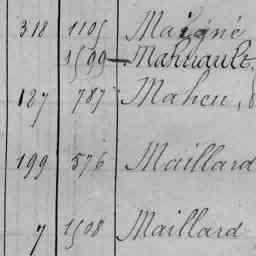 318 1105 Maigné
1599 — Mahuault,
187 787 Maheu,
199 576 Maillard
7 1508 Maillard